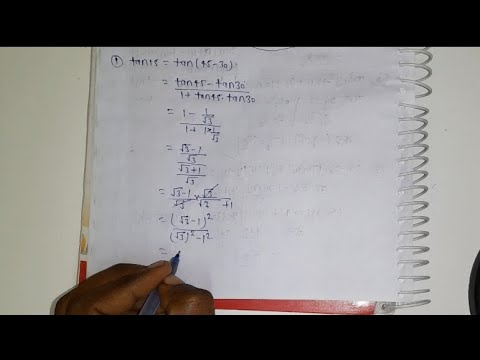 ① tan15 = tan(45-30)
= tan45 - tan30 / 1 + tan45. tan30
= 1 - 1/√3 / 1 + 1×1/√3
= √3-1/√3 / √3+1/√3
= √3-1/√3 × √3/√3 +1
= (√3-1)² / (√3)²-1²
=